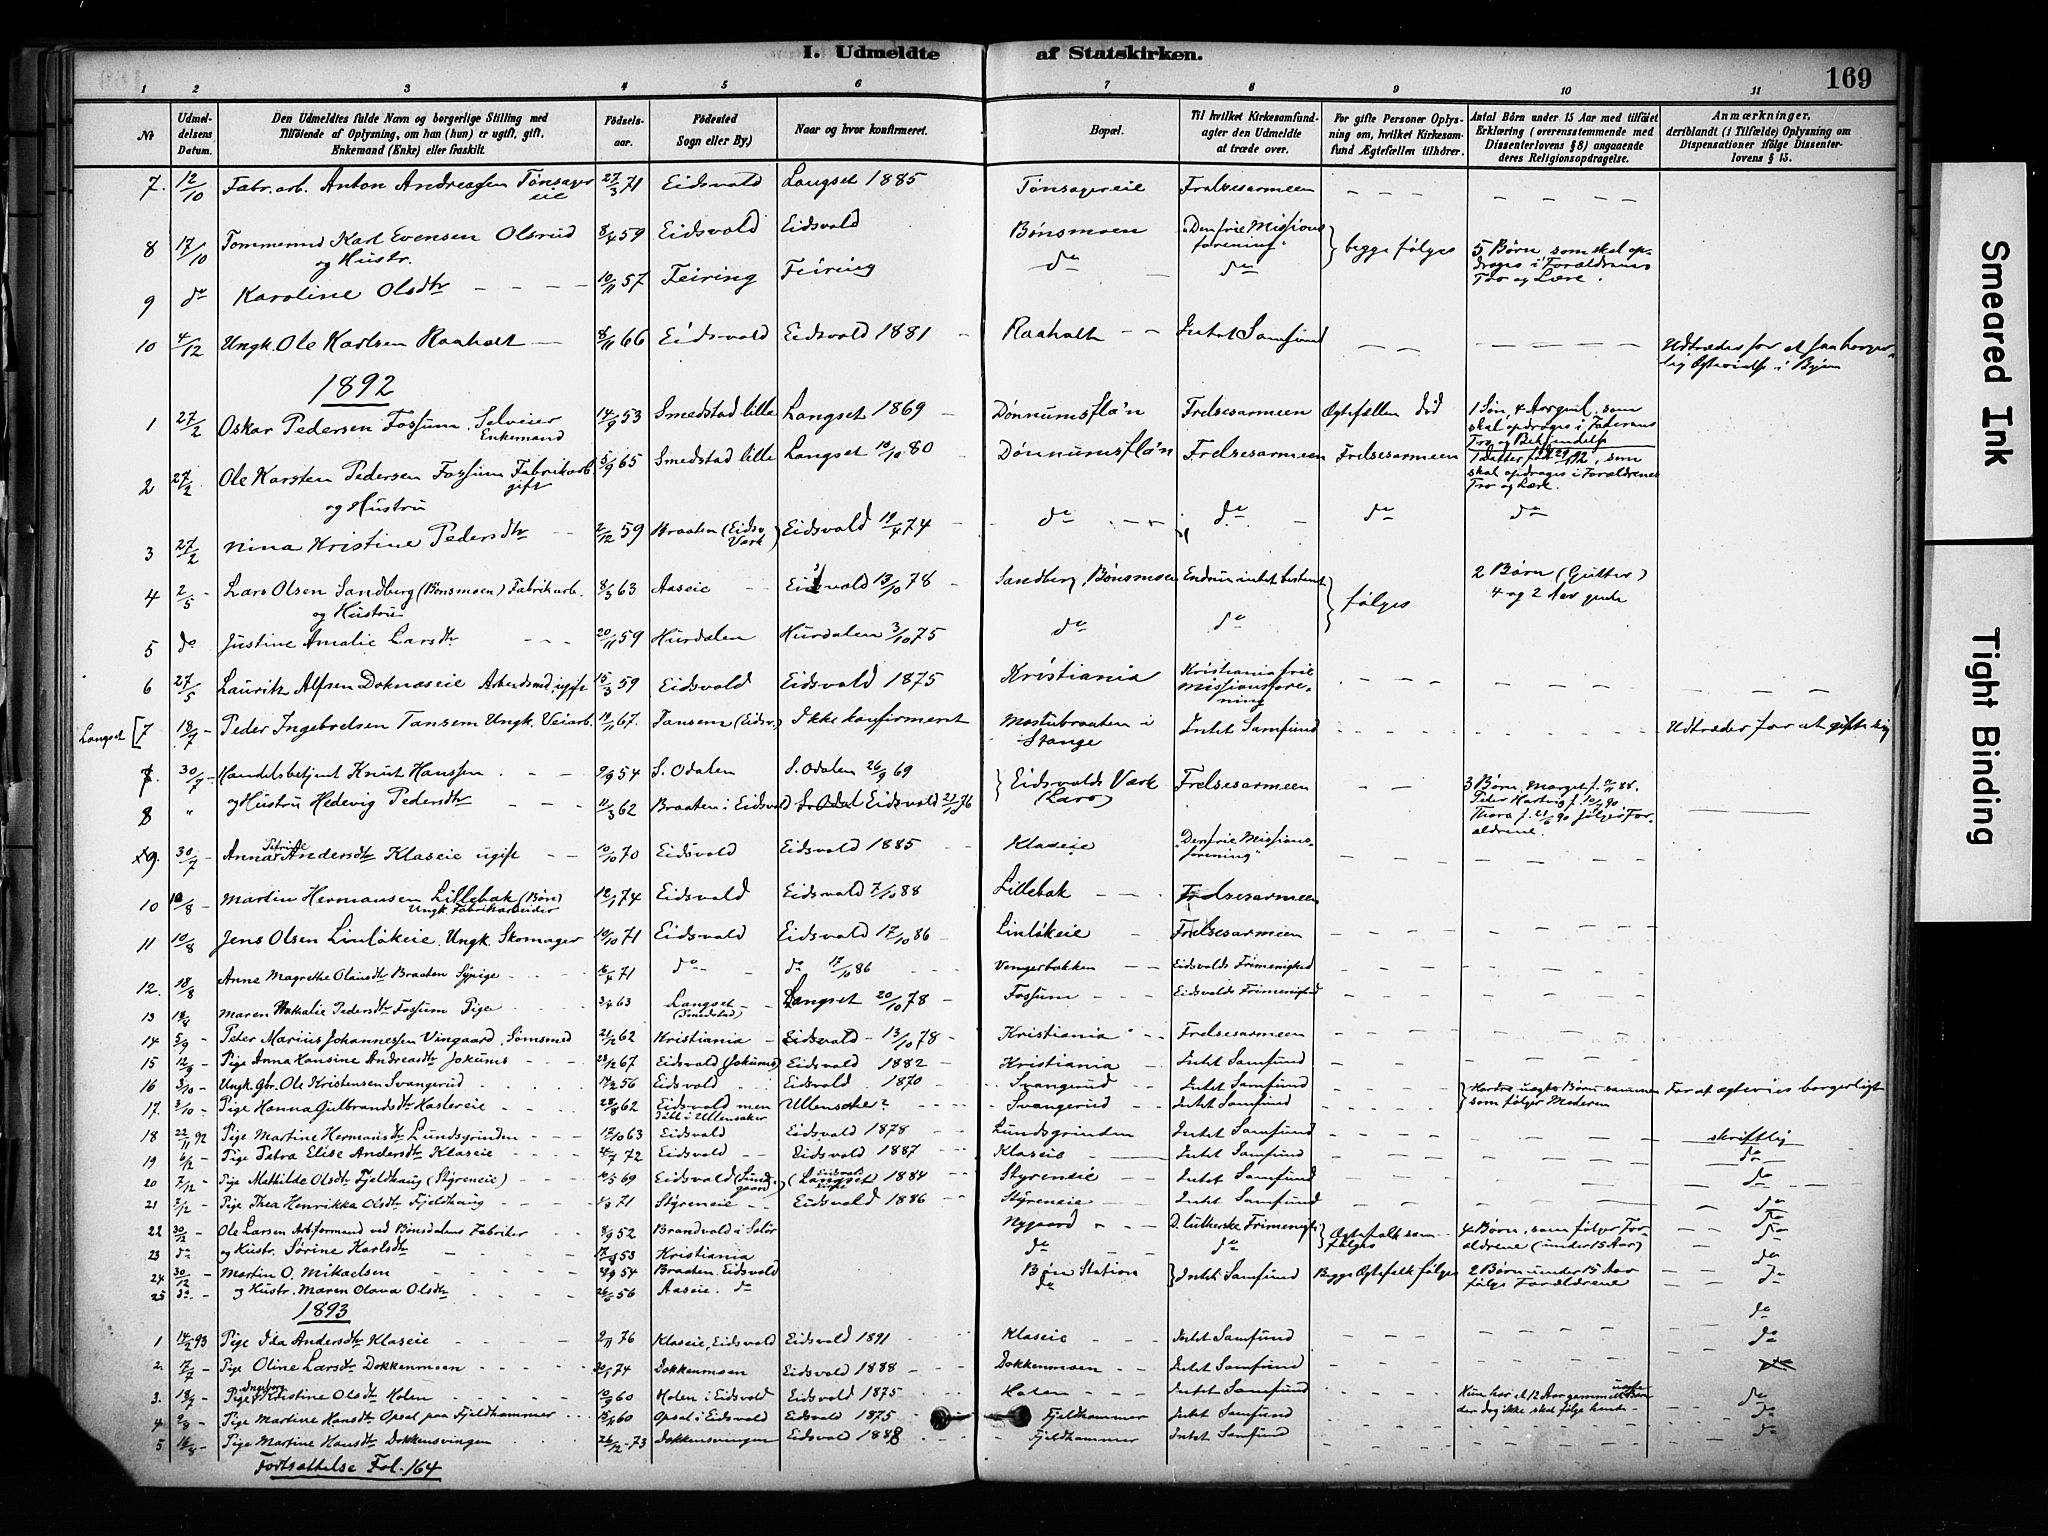 I. Udmeldte af Statskirken.
169
1 2 3 4 5 6 7 8 9 10 11
No
Udmeldelsens Datum.
Den Udmeldtes fulde Navn og borgerlige Stilling med
Tilföiende af Oplysning, om han (hun) er ugift, gift.
Enkemand (Enke) eller fraskilt.
Födselsaar.
Födested
Sogn eller By,)
Naar og hvor konfirmeret.
Bopæl.
Til hvilket Kirkesamfund agter den Udmeldte at træde over.
For gifte Personer Oplysning om, hvilket Kirkesamfund Ægtefællen tilhörer.
Antal Börn under 15 Aar med tilföiet Erklæring (overensstemmende med Dissenterlovens § 8) angaaende deres Religionsopdragelse.
Anmærkninger,
deriblandt (i Tilfælde) Oplysning om Dispensationer ifölge Dissenterlovens § 15.
7. 12/10 Fabr.arb. Anton Andreassen Tönsagereie 27/3 71 Eidsvold Langset 1885 Tönsagereie Frelsesarmeen
8 17/10 Tömmermd Karl Evensen Olsrud 8/4 59 Eidsvold Eidsvold Bönsmoen "Den frie Missionsforening" begge følges 5 Børn, som skal opdrages i Forældrenes Tro og Lære.
og Hustr.
9 do Karoline Olsdtr 10/11 57 Feiring Feiring do do
10 4/12 Ungk. Ole Karlsen Raaholt 8/11 66 Eidsvold Eidsvold 1881 Raaholt Intet Samfund Udtræder for at faa borgerlig Ægtevielse i Byen
1892
1 27/2 Oskar Pedersen Fossum, Selveier Enkemand 14/9 53 Smedstad lille Langset 1869 Dönnumsfla'n Frelsesarmeen Ægtefællen död 1 Søn, 4 Aar gml., som skal opdrages i Faderens Tro og Bekjendelse
2 27/2 Ole Karsten Pedersen Fossum Fabrikarb. gift 5/9 65 Smedstad lille Langset 10/10 80 Dönnumsfla'n Frelsesarmeen Frelsesarmeen 1 Datter, som skal opdrages i Forældrenes Tro og Lære.
og Hustru
3 27/2 Nina Kristine Pedersdtr 2/12 59 Braaten (Eidsv. Værk) Eidsvold 19/4 74 do do do do
4 2/5 Lars Olsen Sandberg (Bönsmoen) Fabrikarb. 8/3 63 Aaseie Eidsvold 13/10 78 Sandberg, Bönsmoen Endnu intet bestemt følges 2 Børn (Gutter) 4 og 2 Aar gmle
og Hustru
5 do Justine Amalie Larsdtr 20/11 59 Hurdalen Hurdalen 3/10 75 do do
6 27/5 Lauritz Alfsen Doknæseie Arbeidsmd, ugift 15/3 59 Eidsvold Eidsvold 1875 Kristiania Kristiania frie Missionsforening
Langset [7 18/7 Peder Ingebretsen Tansem Ungk. Veiarb. 19/11 67. Tansem (Eidsv.) Ikke konfirmeret Mostubraaten i Stange Intet Samfund Udtræder for at gifte sig
7. 30/7 Handelsbetjent Knut Hanssen 9/9 54 S. Odalen S. Odalen 26/9 69 Eidsvolds Værk Frelsesarmeen 3 Børn
8 " og Hustru Hedevig Pedersdtr 11/3 62 Braaten i Eidsvold Eidsvold 22/10 76 følger Forældrene.
9. 30/7 Anna Petrine Andersdtr Klaseie ugift 10/10 70 Eidsvold Eidsvold 1885 Klaseie "Den frie Missionsforening"
10 10/8 Martin Hermansen Lillebak (Bön) Ungk. Fabrikarbeider 12/1 74 Eidsvold Eidsvold 7/10 88 Lillebak Frelsesarmeen
11 10/8 Jens Olsen Linlökeie. Ungk. Skomager 19/10 71 Eidsvold Eidsvold 17/10 86 Linlökeie Frelsesarmeen
12. 18/8 Anne Magrethe Olausdtr Braaten Sypige 16/4 71 do do 17/10 86 Vengerbakken Eidsvolds Frimenighed
13 18/8 Maren Nathalie Pedersdtr Fossum Pige 3/4 63 Langset (Smedstad) Langset 20/10 78 Fossum Eidsvolds Frimenighed
14 5/9 Peter Marius Johannessen Vingaard, Sömsmed 21/12 62 Kristiania Eidsvold 13/10 78 Kristiania Frelsesarmeen
15 12/9 Pige Anna Hansine Andreasdtr Jokums 23/12 67 Eidsvold (Jokums) Eidsvold 1882 Kristiania Intet Samfund
16 3/10 Ungk. Gbr. Ole Kristensen Svangerud 14/2 56 Eidsvold Eidsvold 1870 Svangerud Intet Samfund uægte Børn sammen som følger Moderen For at ægtevies borgerligt
17. 3/10 Pige Hanna Gulbrandsdtr Hastereie 28/8 62 Eidsvold men döbt i Ullensaker Ullensaker? Svangerud Intet Samfund
18 22/11 92 Pige Martine Hermansdtr Lundsgrinden 17/10 63 Eidsvold Eidsvold 1878 Lundsgrinden Intet Samfund skriftlig
19 6/12 Pige Petra Elise Andersdtr Klaseie 4/7 72 Eidsvold Eidsvold 1887 Klaseie Intet Samfund do
20 7/12 Pige Mathilde Olsdtr Fjeldhaug (Styreneie) 10/5 69 Eidsvold (Sundgaard) (Langset Eidsvold Kirke) 1884 Styreneie Intet Samfund do
21 7/12 Pige Thea Henrikka Olsdtr Fjeldhaug 4/8 71 Styreneie Eidsvold 1886 Styreneie Intet Samfund do
22 30/12 Ole Larsen Arbformand ved Bönsdalens Fabriker 8/9 52 Brandvold i Solör Nygaard D. lutherske Frimenigh. Ægtefolk som følges 4 Børn, som følger Forældrene (under 15 Aar) do
23 do og Hustr. Sörine Karlsdtr 17/8 53 Kristiania do do do
24 30/12 Martin O. Mikaelsen 28/9 54 Braaten. Eidsvold Bön Station Intet Samfund Begge Ægtefolk følges 2 Børn under 15 Aar følge Forældrene do
25 do og Hustr. Maren Olava Olsdtr 26/6 56 Aaseie. do do
1893
1 14/2 93 Pige Ida Andersdtr Klaseie 2/11 76 Klaseie, Eidsvold Eidsvold 1891 Klaseie Intet Samfund do
2. 7/7 Pige Oline Larsdtr Dokkenmoen 30/1 74 Dokkenmoen Eidsvold 1888 Dokkenmoen Intet Samfund
3. 18/7 Pige Ingeborg Kristine Olsdtr Holen 10/9 60 Holen i Eidsvold Eidsvold 1875 Holen Intet Samfund Hun har et 12 Aar gammelt uægte Barn der dog ikke skal følge hende do
4 2/8 Pige Martine Hansdtr Opsal paa Fjeldhammer 15/11 60 Opsal i Eidsvold Eidsvold 1875 Fjeldhammer Intet Samfund do
5 16/8 Pige Martine Hansdtr Dokkensvingen 26/12 73 Dokkensvingen Eidsvold 1888 Fjeldhammer Intet Samfund do
Fortsættelse Fol. 164
Smeared Ink
Tight Binding